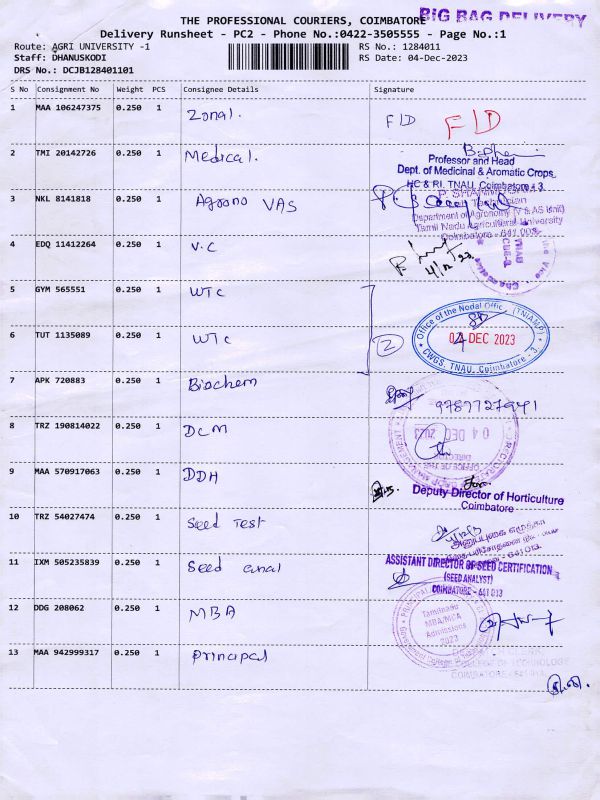 THE PROFESSIONAL COURIERS, COIMBATORE
BIG BAG DELIVERY
Delivery Runsheet - PC2 - Phone No.:0422-3505555 - Page No.:1
Route: AGRI UNIVERSITY -1
RS No.: 1284011
Staff: DHANUSKODI
RS Date: 04-Dec-2023
DRS No.: DCJB128401101
S No Consignment No Weight PCS Consignee Details Signature
1 MAA 106247375 0.250 1 Zonal. FID FID
2 TMI 20142726 0.250 1 Medical.
Professor and Head
Dept. of Medicinal & Aromatic Crops,
HC & RI, TNAU, Coimbatore - 3.
3 NKL 8141818 0.250 1 Agrono VAS
Department of Agronomy
Tamil Nadu Agricultural University
Coimbatore - 641 003
4 EDQ 11412264 0.250 1 V.C
4/12/23
5 GYM 565551 0.250 1 WTC
Office of the Nodal Officer (TNIAMP)
04 DEC 2023
CWGS, TNAU, Coimbatore - 3
6 TUT 1135089 0.250 1 WTC 2
7 APK 720883 0.250 1 Biochem
9787727941
8 TRZ 190814022 0.250 1 DCM
04 DEC 2023
9 MAA 570917063 0.250 1 DDH
Deputy Director of Horticulture
Coimbatore
10 TRZ 54027474 0.250 1 Seed Test
11 IXM 505235839 0.250 1 Seed anal
ASSISTANT DIRECTOR OF SEED CERTIFICATION
(SEED ANALYST)
COIMBATORE - 641 013
12 DDG 208062 0.250 1 MBA
Tamilnadu
MBA/MCA
Admissions
2023
13 MAA 942999317 0.250 1 principal
COLLEGE OF TECHNOLOGY